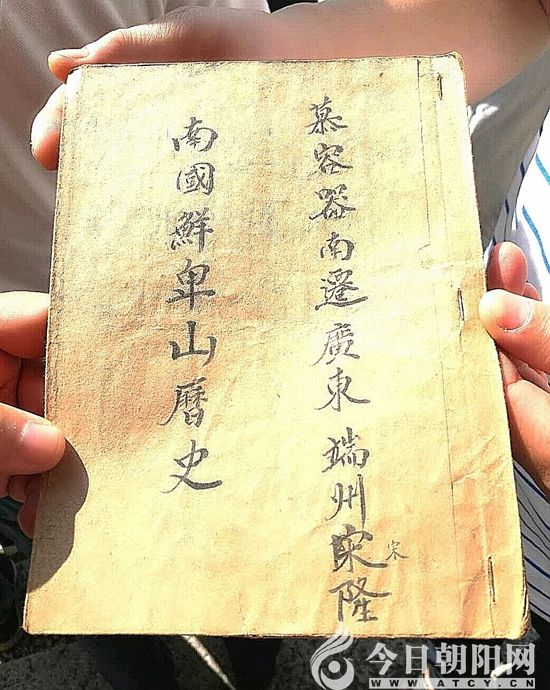 慕容器南遷廣東端州宋隆
宋
南國鮮卑山曆史
今日朝阳网
WWW.ATCY.CN